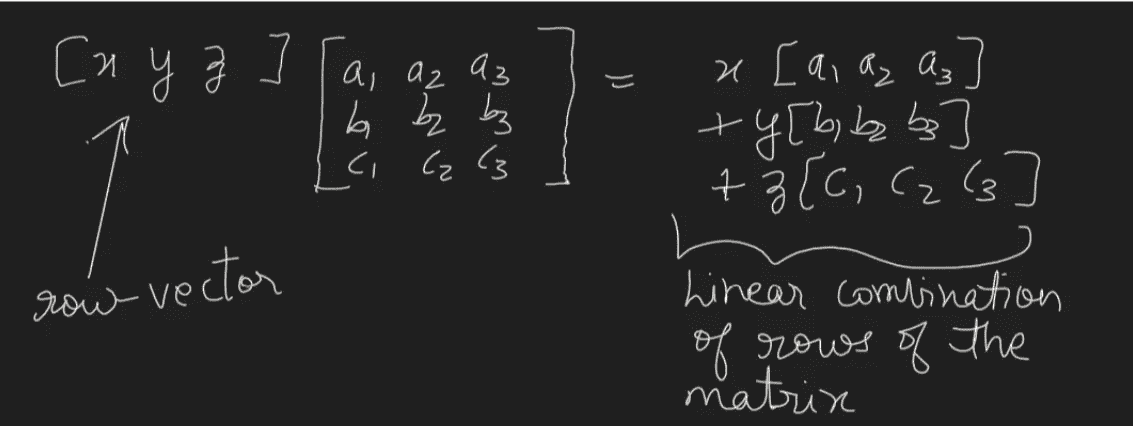 [x y z] [a₁ a₂ a₃ = x [a₁ a₂ a₃]
b₁ b₂ b₃ + y [b₁ b₂ b₃]
c₁ c₂ c₃] + z [c₁ c₂ c₃]
row-vector
Linear combination
of rows of the
matrix